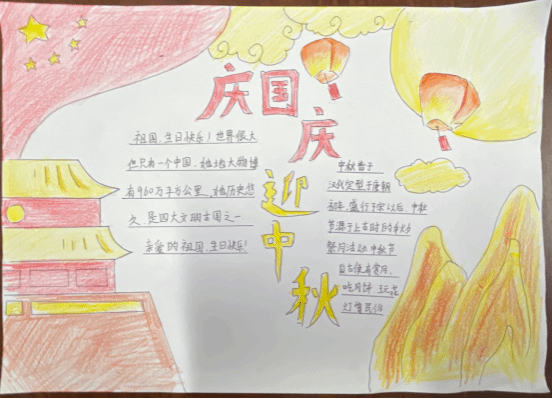 庆国庆
迎中秋
祖国,生日快乐!世界很大
但只有一个中国,她地大物博
有960万平方公里,她历史悠
久,是四大文明古国之一
亲爱的祖国,生日快乐!
中秋
汉代定型于唐朝
初年,盛行于宋以后,中秋
节源于上古时的秋夕
祭月活动,中秋节
自古便有赏月、
吃月饼、玩花
灯等民俗